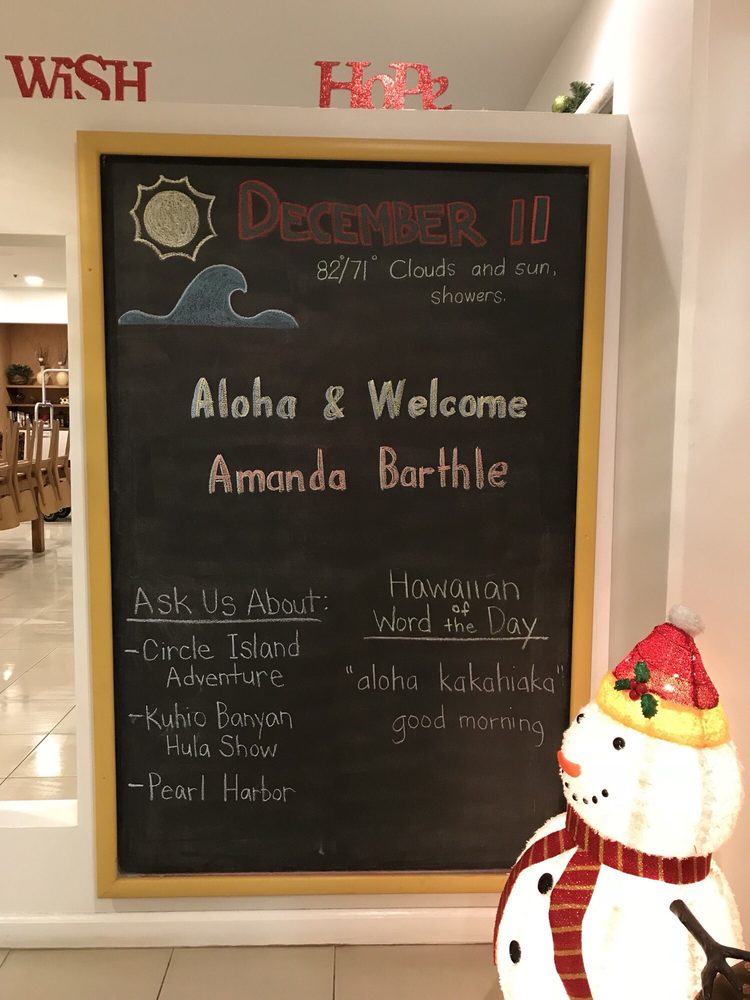 WiSH HoPe
DECEMBER 11
82°/71° Clouds and sun,
showers.
Aloha & Welcome
Amanda Barthle
Ask Us About:
-Circle Island
Adventure
-Kuhio Banyan
Hula Show
-Pearl Harbor
Hawaiian
of
Word the Day
"aloha kakahiaka"
good morning